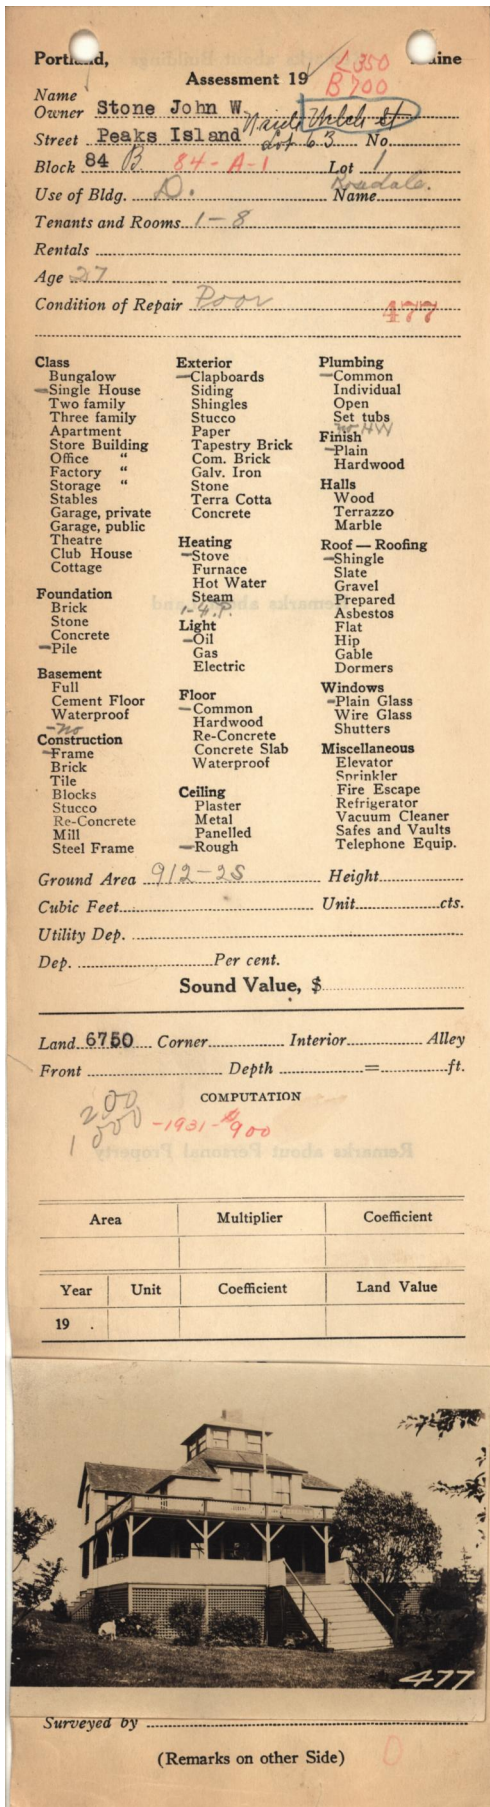 Portland, Maine
L 350
Assessment 19
B 700
Name
Owner Stone John W.
Welch St
Street Peaks Island Lot 63 No.
Block 84 B 84-A-1 Lot 1
Use of Bldg. D. Name
Tenants and Rooms 1-8
Rentals
Age 27
Condition of Repair Poor 477
Class
Bungalow
Single House
Two family
Three family
Apartment
Store Building
Office "
Factory "
Storage "
Stables
Garage, private
Garage, public
Theatre
Club House
Cottage
Foundation
Brick
Stone
Concrete
Pile
Basement
Full
Cement Floor
Waterproof
no
Construction
Frame
Brick
Tile
Blocks
Stucco
Re-Concrete
Mill
Steel Frame
Exterior
Clapboards
Siding
Shingles
Stucco
Paper
Tapestry Brick
Com. Brick
Galv. Iron
Stone
Terra Cotta
Concrete
Heating
Stove
Furnace
Hot Water
Steam
1-f.P.
Light
Oil
Gas
Electric
Floor
Common
Hardwood
Re-Concrete
Concrete Slab
Waterproof
Ceiling
Plaster
Metal
Panelled
Rough
Plumbing
Common
Individual
Open
Set tubs
no HW
Finish
Plain
Hardwood
Halls
Wood
Terrazzo
Marble
Roof — Roofing
Shingle
Slate
Gravel
Prepared
Asbestos
Flat
Hip
Gable
Dormers
Windows
Plain Glass
Wire Glass
Shutters
Miscellaneous
Elevator
Sprinkler
Fire Escape
Refrigerator
Vacuum Cleaner
Safes and Vaults
Telephone Equip.
Ground Area 912-2S Height
Cubic Feet Unit cts.
Utility Dep.
Dep. Per cent.
Sound Value, $
Land 6750 Corner Interior Alley
Front Depth = ft.
COMPUTATION
200
1000 -1931-$900
Area Multiplier Coefficient
Year Unit Coefficient Land Value
19 .
477
Surveyed by
(Remarks on other Side)
D